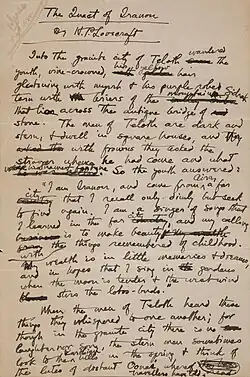 The Quest of Iranon
By H. P. Lovecraft
Into the granite city of Teloth wandered the
youth, vine-crowned, his yellow hair
glistening with myrrh & his purple robe
torn with briers of the
that lies across the antique bridge of
stone. The men of Teloth are dark and
stern, & dwell in square houses, and
with frowns they asked the
stranger whence he had come and what
So the youth answered:
"I am Iranon, and come from Aira, a far
city that I recall only dimly but seek
to find again. I am a singer of songs that
I learned in the far city, and my calling
is to make beauty
with the things remembered of childhood.
My wealth is in little memories & dreams
and in hopes that I sing in gardens
when the moon is tender & the west wind
stirs the lotos-buds."
When the men of Teloth heard these
things they whispered to one another; for
though in the granite city there is no
laughter or song, the stern men sometimes
look to the hills in the spring & think of
the lutes of distant Oonai whereof
travellers have told.